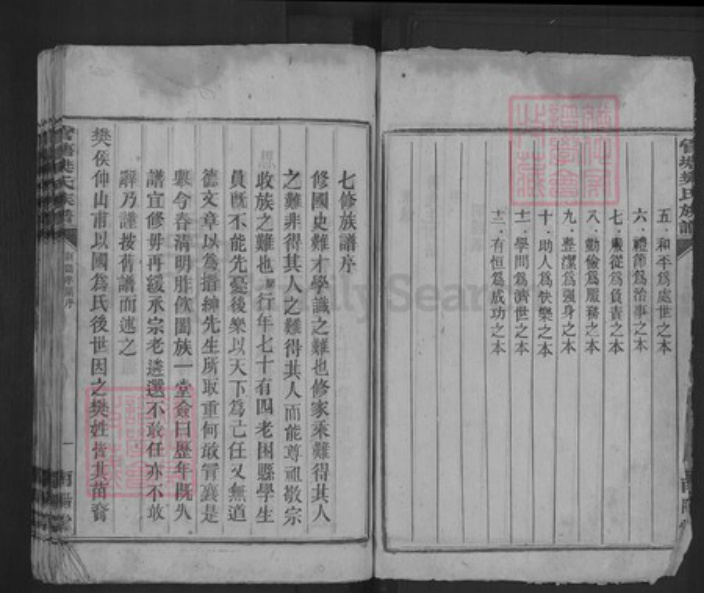 五．和平爲處世之本
六．禮節爲治事之本
七．服從爲負責之本
八．勤儉爲服務之本
九．整潔爲强身之本
十．助人爲快樂之本
十一．學問爲濟世之本
十二．有恒爲成功之本
七修族譜序
修國史難才學識之難也修家乘難得其人
之難非得其人之難得其人而能尊祖敬宗
收族之難也 行年七十有四老困縣學生
員旣不能先憂後樂以天下爲己任又無道
德文章以爲搢紳先生所取重何敢官襄是
舉今春淸明胙飮闔族一堂僉曰歷年旣久
譜宜修毋再緩承宗老遴選不敢任亦不敢
辭乃謹按舊譜而述之
樊侯仲山甫以國爲氏後世因之樊姓皆其苗裔
一
南陽堂